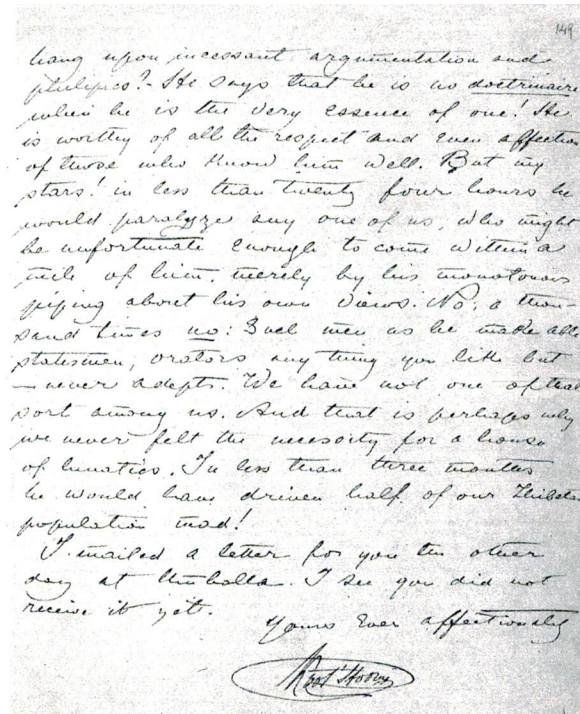 149
hang upon incessant argumentation and
philipics?- He says that he is no doctrinaire
when he is the very essence of one! He
is worthy of all the respect and even affection
of those who know him well. But my
stars! in less than twenty four hours he
would paralyze any one of us, who might
be unfortunate enough to come within a
mile of him, merely by his monotonous
piping about his own views. No; a thou-
sand times no: Such men as he make able
statesmen, orators any thing you like but
— never adepts. We have not one of that
sort among us. And that is perhaps why
we never felt the necessity for a house
of lunatics. In less than three months
he would have driven half of our Thibetan
population mad!
I mailed a letter for you the other
day at Umballa. I see you did not
receive it yet.
Yours ever affectionately
Koot' Hoomi